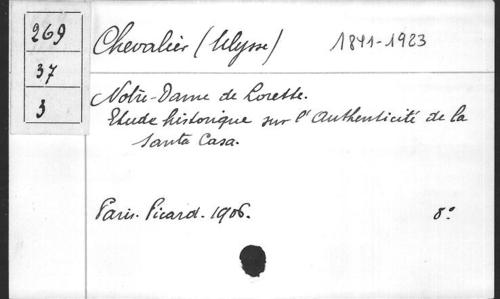 269
37
3
Chevalier (Ulysse) 1841-1923
Notre-Dame de Lorette.
Etude historique sur l'authenticité de la
Santa Casa.
Paris. Picard. 1906. 8°